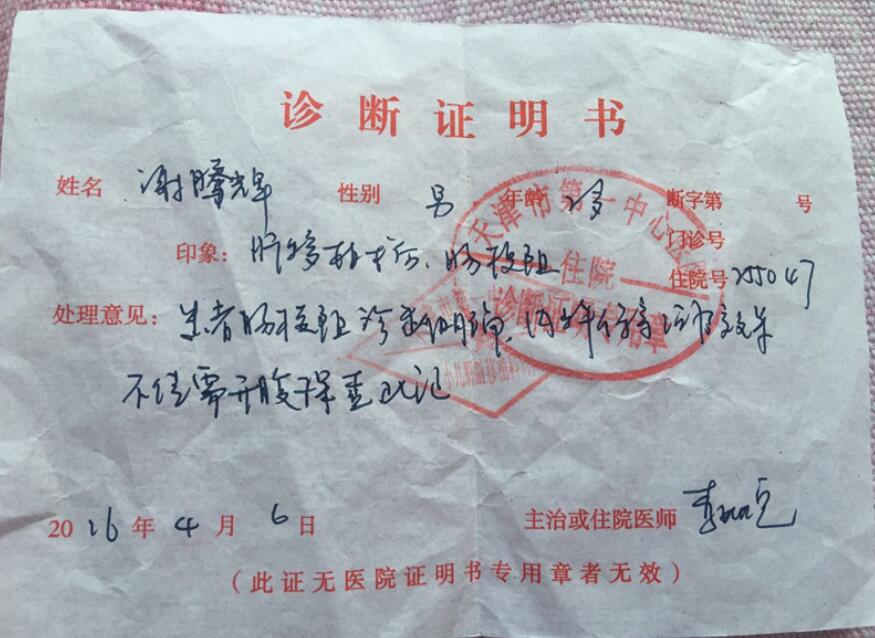 诊断证明书
姓名 谢腾辉 性别 男 年龄 断字第 号
门诊号
印象：肝移植术后、肠梗阻 住院号 255047
处理意见：患者肠梗阻诊断明确，内科保守治疗效果
不佳需开腹探查 此记
2016年4月6日 主治或住院医师
（此证无医院证明书专用章者无效）
天津市第一中心医院
住院
诊断证明专用章